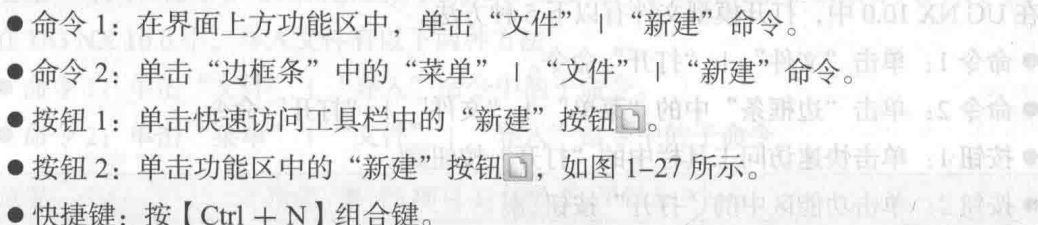 ●命令 1：在界面上方功能区中，单击“文件”|“新建”命令。
●命令 2：单击“边框条”中的“菜单”|“文件”|“新建”命令。
●按钮 1：单击快速访问工具栏中的“新建”按钮。
●按钮 2：单击功能区中的“新建”按钮，如图 1-27 所示。
●快捷键：按【Ctrl + N】组合键。